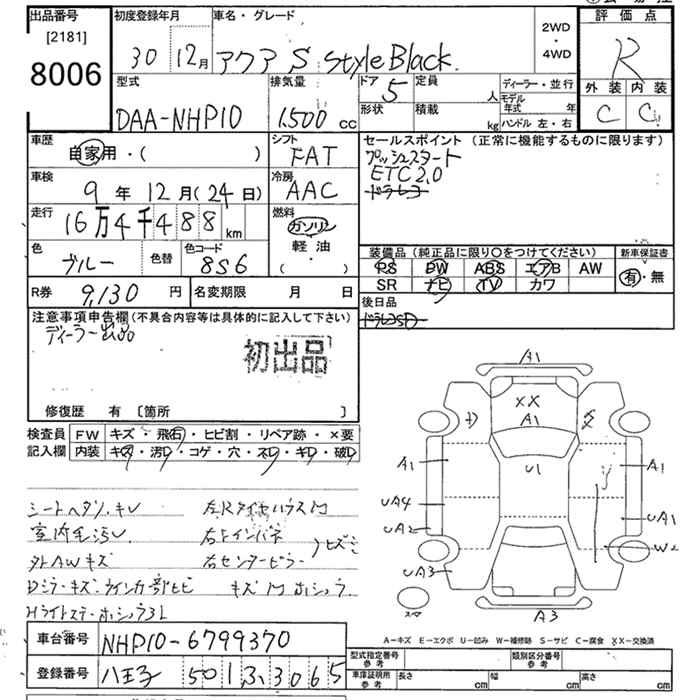 出品番号
[2181]
8006
初度登録年月
30 12月
車名・グレード
アクア S Style Black
2WD
・
4WD
評価点
R
外装 内装
C C
型式
DAA-NHP10
排気量
1,500 cc
ドア
5
定員
人
形状
積載
kg
ディーラー・並行
モデル年式 年
ハンドル 左・右
車歴
自家用・( )
シフト
FAT
セールスポイント (正常に機能するものに限ります)
プッシュスタート
ETC2.0
ドラレコ
車検
9年12月(24日)
冷房
AAC
走行
16万4千488km
燃料
ガソリン
軽油
( ・ )
色
ブルー
色替
色コード
8S6
装備品 (純正品に限り〇をつけてください)
PS PW ABS エアB AW
SR ナビ TV カワ
新車保証書
有・無
R券
9,130円
名変期限 月 日
後日品
注意事項申告欄(不具合内容等は具体的に記入して下さい)
ディーラー出品
初出品
修復歴 有 〔箇所 〕
検査員記入欄
FW キズ・飛石・ヒビ割・リペア跡・×要
内装 キズ・汚レ・コゲ・穴・スレ・キレ・破レ
シートヘタリ・キレ
室内毛汚レ
外AWキズ
右センターピラー
車台番号
NHP10-6799370
登録番号
八王子 501 ふ 3065
A1
XX
A1
U1
A1
A1
UA4
UA2
UA1
W2
UA3
A3
A−キズ E−エクボ U−凹み W−補修跡 S−サビ C−腐食 XX−交換済
型式指定番号 参考
類別区分番号 参考
車庫証明用 参考
長さ cm
幅 cm
高さ cm